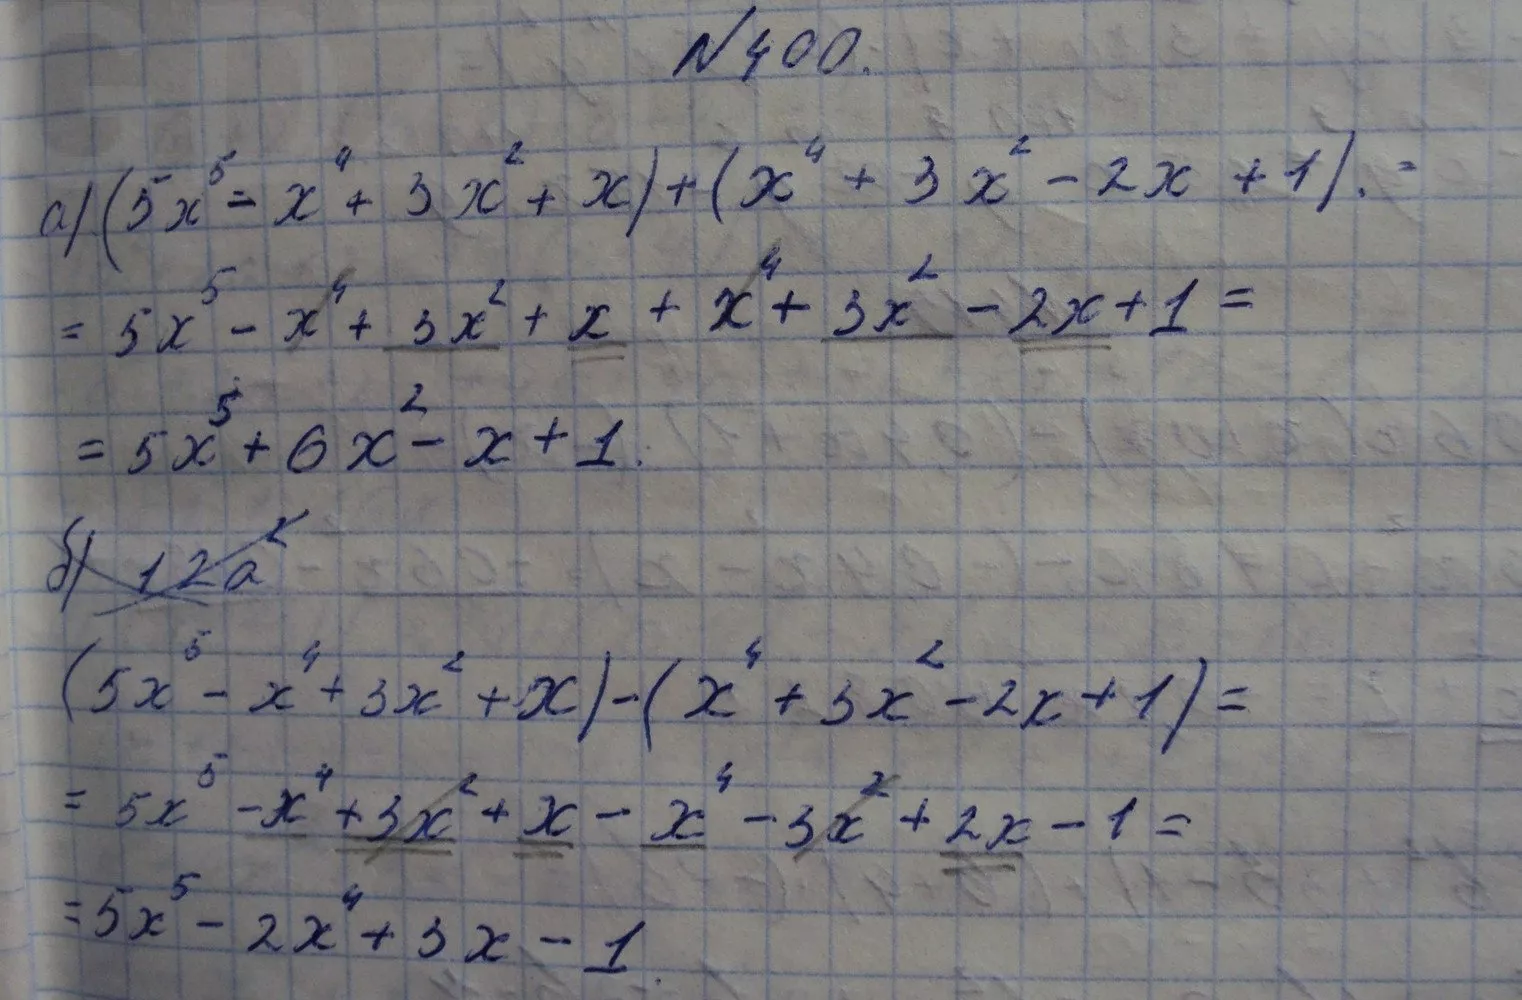 №400.
а) (5x⁵ - x⁴ + 3x² + x) + (x⁴ + 3x² - 2x + 1). =
= 5x⁵ - x⁴ + 3x² + x + x⁴ + 3x² - 2x + 1 =
= 5x⁵ + 6x² - x + 1.
б) 12a²
(5x⁵ - x⁴ + 3x² + x) - (x⁴ + 3x² - 2x + 1) =
= 5x⁵ - x⁴ + 3x² + x - x⁴ - 3x² + 2x - 1 =
= 5x⁵ - 2x⁴ + 3x - 1.